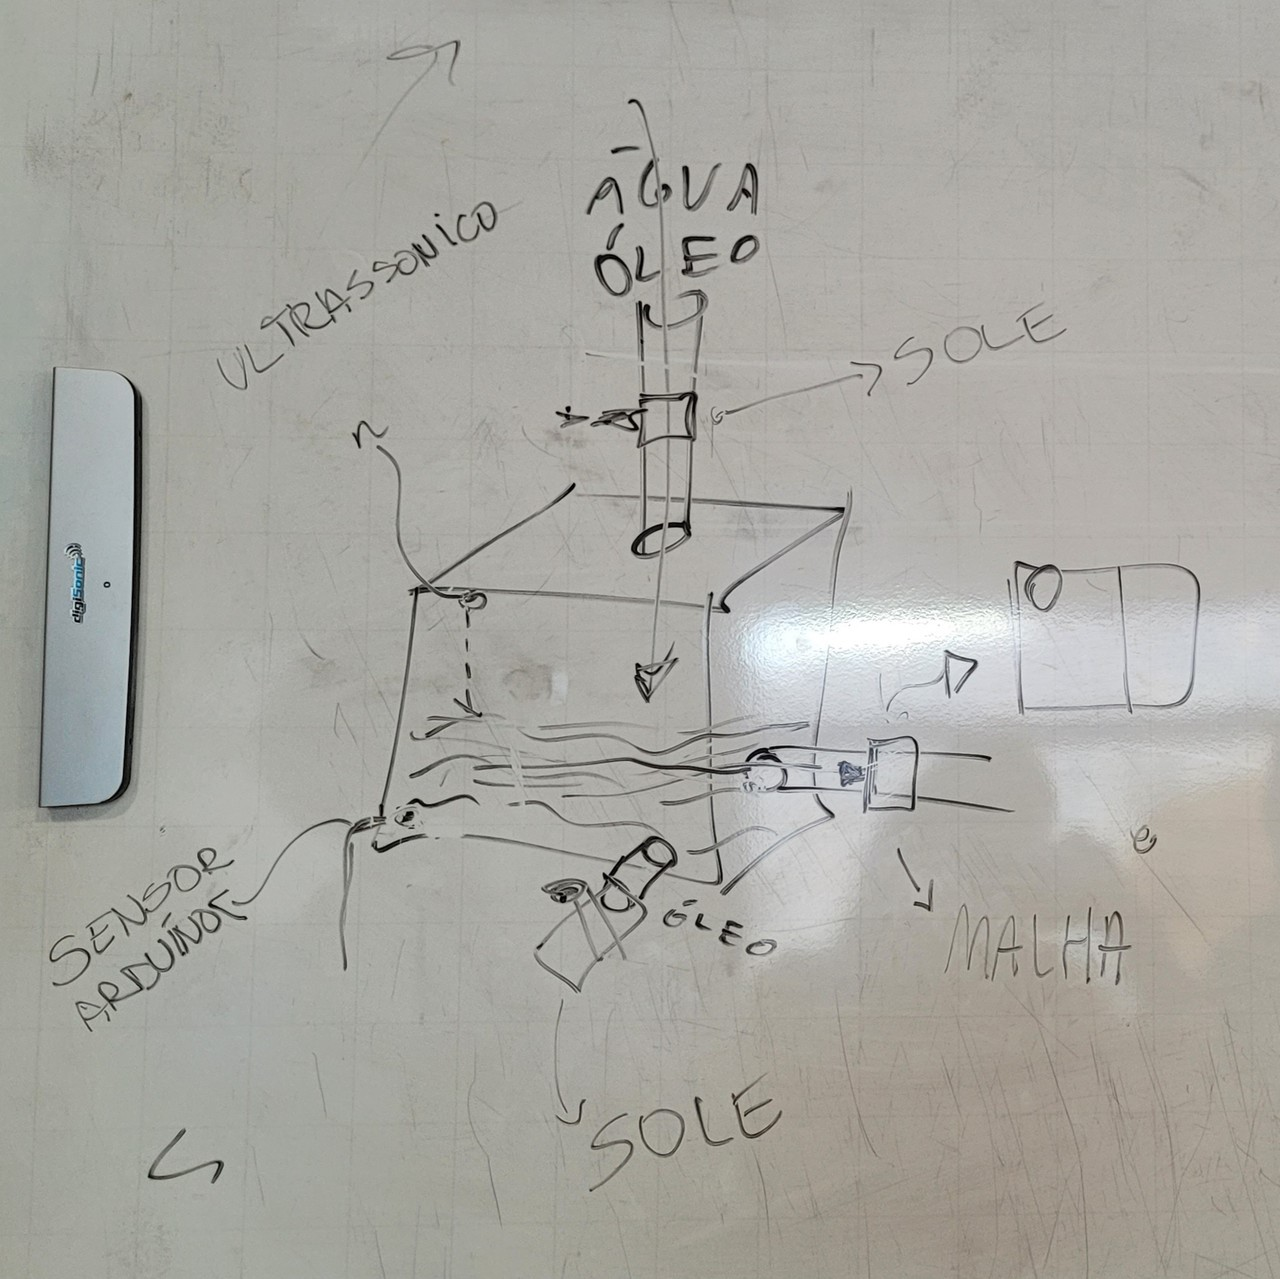 ÁGUA
ÓLEO
ULTRASSONICO
SOLE
digiSonic
SENSOR
ARDUÍNO
ÓLEO
MALHA
SOLE